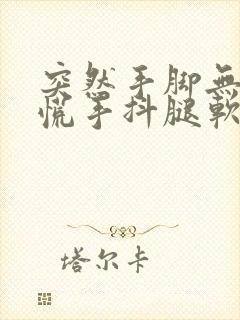 突然手脚無
慌手抖腿軟
塔尔卡